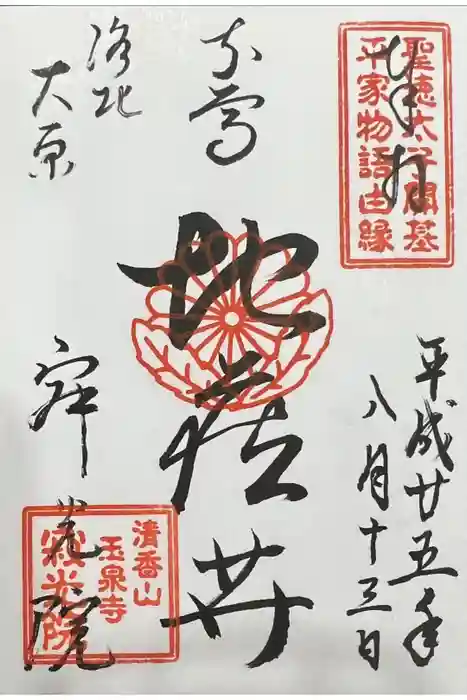 奉拝
聖徳太子開基
平家物語由縁
平成廿五年
八月十三日
本尊
地蔵𦬇
洛北
大原
寂光院
清香山
玉泉寺
寂光院